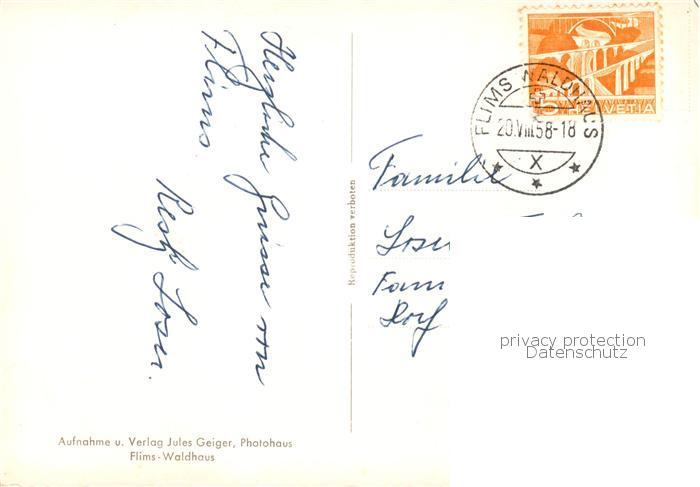 Herzliche Grüsse von
Flims.
Loser.
Aufnahme u. Verlag Jules Geiger, Photohaus
Flims-Waldhaus
Reproduktion verboten
5 HELVETIA
FLIMS WALDHAUS
20.VIII.58-18
X
Familie
Fam
Dorf
privacy protection
Datenschutz